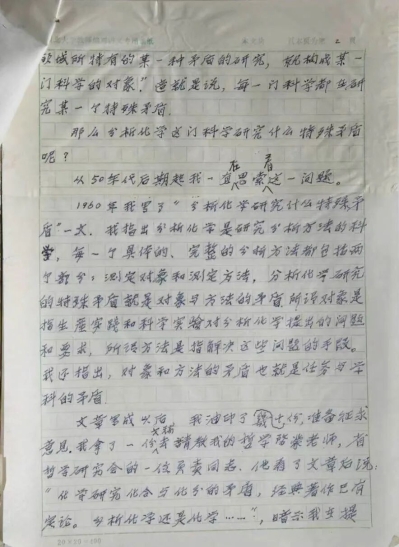 领域所特有的某一种矛盾的研究，就构成某一
门科学的对象。”这就是说，每一门科学都在研
究某一个特殊矛盾。
那么分析化学这门科学研究什么特殊矛盾
呢？
从50年代后期起我一直在思索着这一问题。
1960年我写了“分析化学研究什么特殊矛
盾”一文，我指出分析化学是研究分析方法的科
学，每一个具体的、完整的分析方法都包括两
个部分：测定对象和测定方法，分析化学研究
的特殊矛盾就是对象与方法的矛盾。所谓对象是
指生产实践和科学实验对分析化学提出的问题
和要求，所谓方法是指解决这些问题的手段。
我还指出，对象和方法的矛盾也就是任务与学
科的矛盾。
文章写成以后，我油印了几十份，准备征求
意见，我拿了一份去请教我的哲学启蒙老师，省
哲学研究会的一位负责同志，他看了文章后说：
“化学研究化合与化分的矛盾，经典著作已有
定论。分析化学还是化学……”，暗示我在提
20×20=400